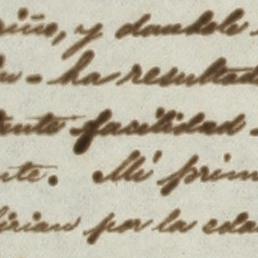 riño, y dandole
- ha resultado
facilidad
nte. Mi prim
irian por la eda